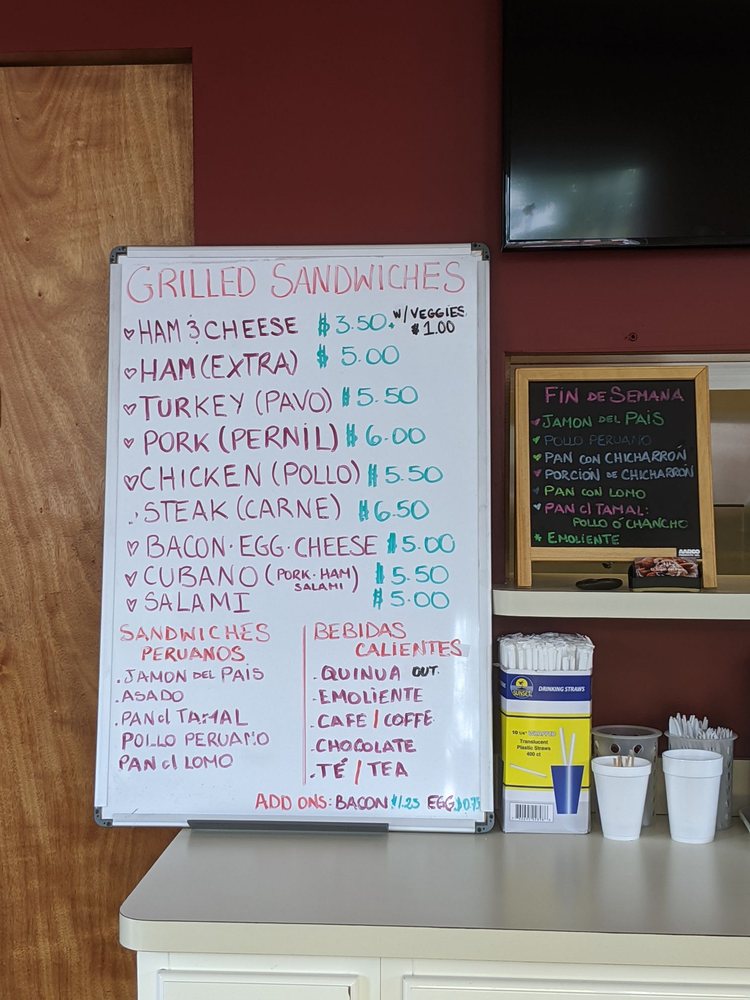 GRILLED SANDWICHES
HAM & CHEESE $3.50 + W/VEGGIES $1.00
HAM (EXTRA) $5.00
TURKEY (PAVO) $5.50
PORK (PERNIL) $6.00
CHICKEN (POLLO) $5.50
STEAK (CARNE) $6.50
BACON·EGG·CHEESE $5.00
CUBANO (PORK·HAM SALAMI) $5.50
SALAMI $5.00
SANDWICHES
PERUANOS
.JAMON DEL PAIS
.ASADO
.PAN c/ TAMAL
POLLO PERUANO
PAN c/ LOMO
BEBIDAS
CALIENTES
.QUINUA OUT
.EMOLIENTE
.CAFE / COFFE
.CHOCOLATE
.TÉ / TEA
ADD ONS: BACON $1.25 EGG $0.75
FIN DE SEMANA
JAMON DEL PAIS
POLLO PERUANO
PAN CON CHICHARRÓN
PORCIÓN DE CHICHARRÓN
PAN CON LOMO
PAN c/ TAMAL:
POLLO Ó CHANCHO
* EMOLIENTE
AARCO
SUNSET
DRINKING STRAWS
10 1/4" WRAPPED
Translucent
Plastic Straws
400 ct